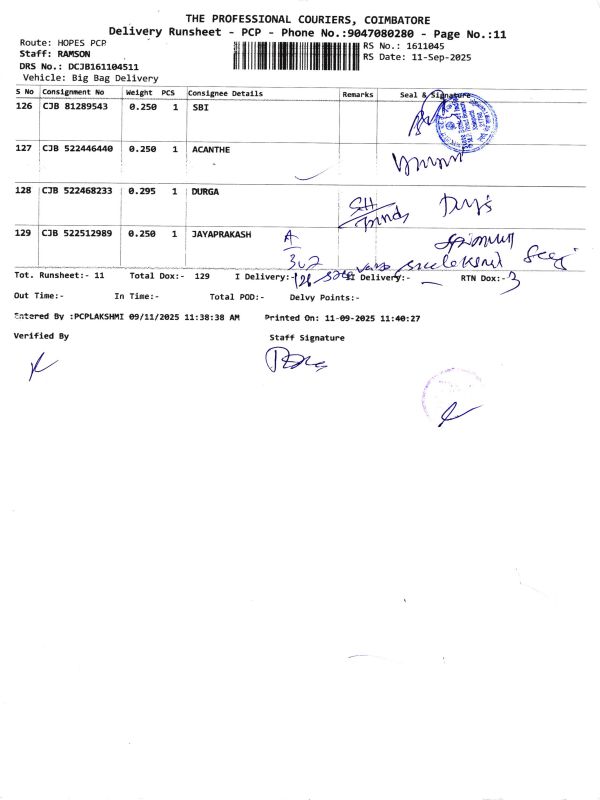 THE PROFESSIONAL COURIERS, COIMBATORE
Delivery Runsheet - PCP - Phone No.:9047080280 - Page No.:11
Route: HOPES PCP
RS No.: 1611045
Staff: RAMSON
RS Date: 11-Sep-2025
DRS No.: DCJB161104511
Vehicle: Big Bag Delivery
S No Consignment No Weight PCS Consignee Details Remarks Seal & Signature
126 CJB 81289543 0.250 1 SBI
127 CJB 522446440 0.250 1 ACANTHE
128 CJB 522468233 0.295 1 DURGA
129 CJB 522512989 0.250 1 JAYAPRAKASH A
302
Tot. Runsheet:- 11 Total Dox:- 129 I Delivery:- 126 II Delivery:- RTN Dox:- 3
Out Time:- In Time:- Total POD:- Delvy Points:-
Entered By :PCPLAKSHMI 09/11/2025 11:38:38 AM Printed On: 11-09-2025 11:40:27
Verified By Staff Signature